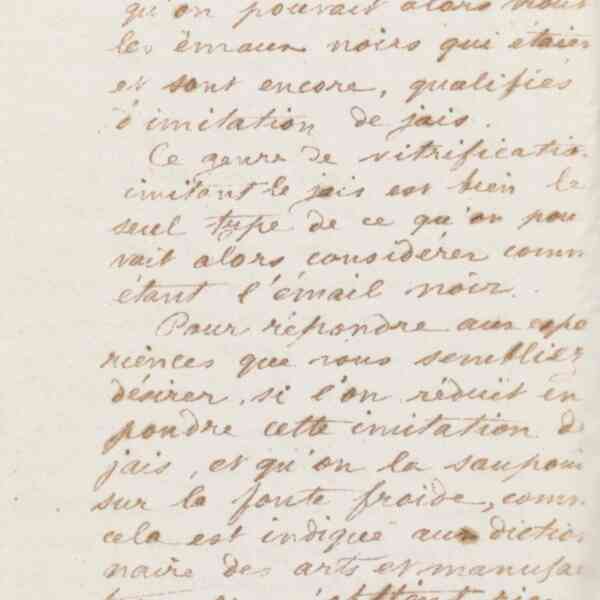 qu'on pouvait alors
les émaux noirs qui étaien
et sont encore, qualifiés
d'imitation de jais.
Ce genre de vitrificatio
imitant le jais est bien le
seul type de ce qu'on pou
vait alors considérer comm
étant l'émail noir.
Pour répondre aux expé
riences que vous sembliez
désirer, si l'on réduit en
poudre cette imitation de
jais, et qu'on la saupou
sur la fonte froide, comm
cela est indiqué aux diction
naire des arts et manufac